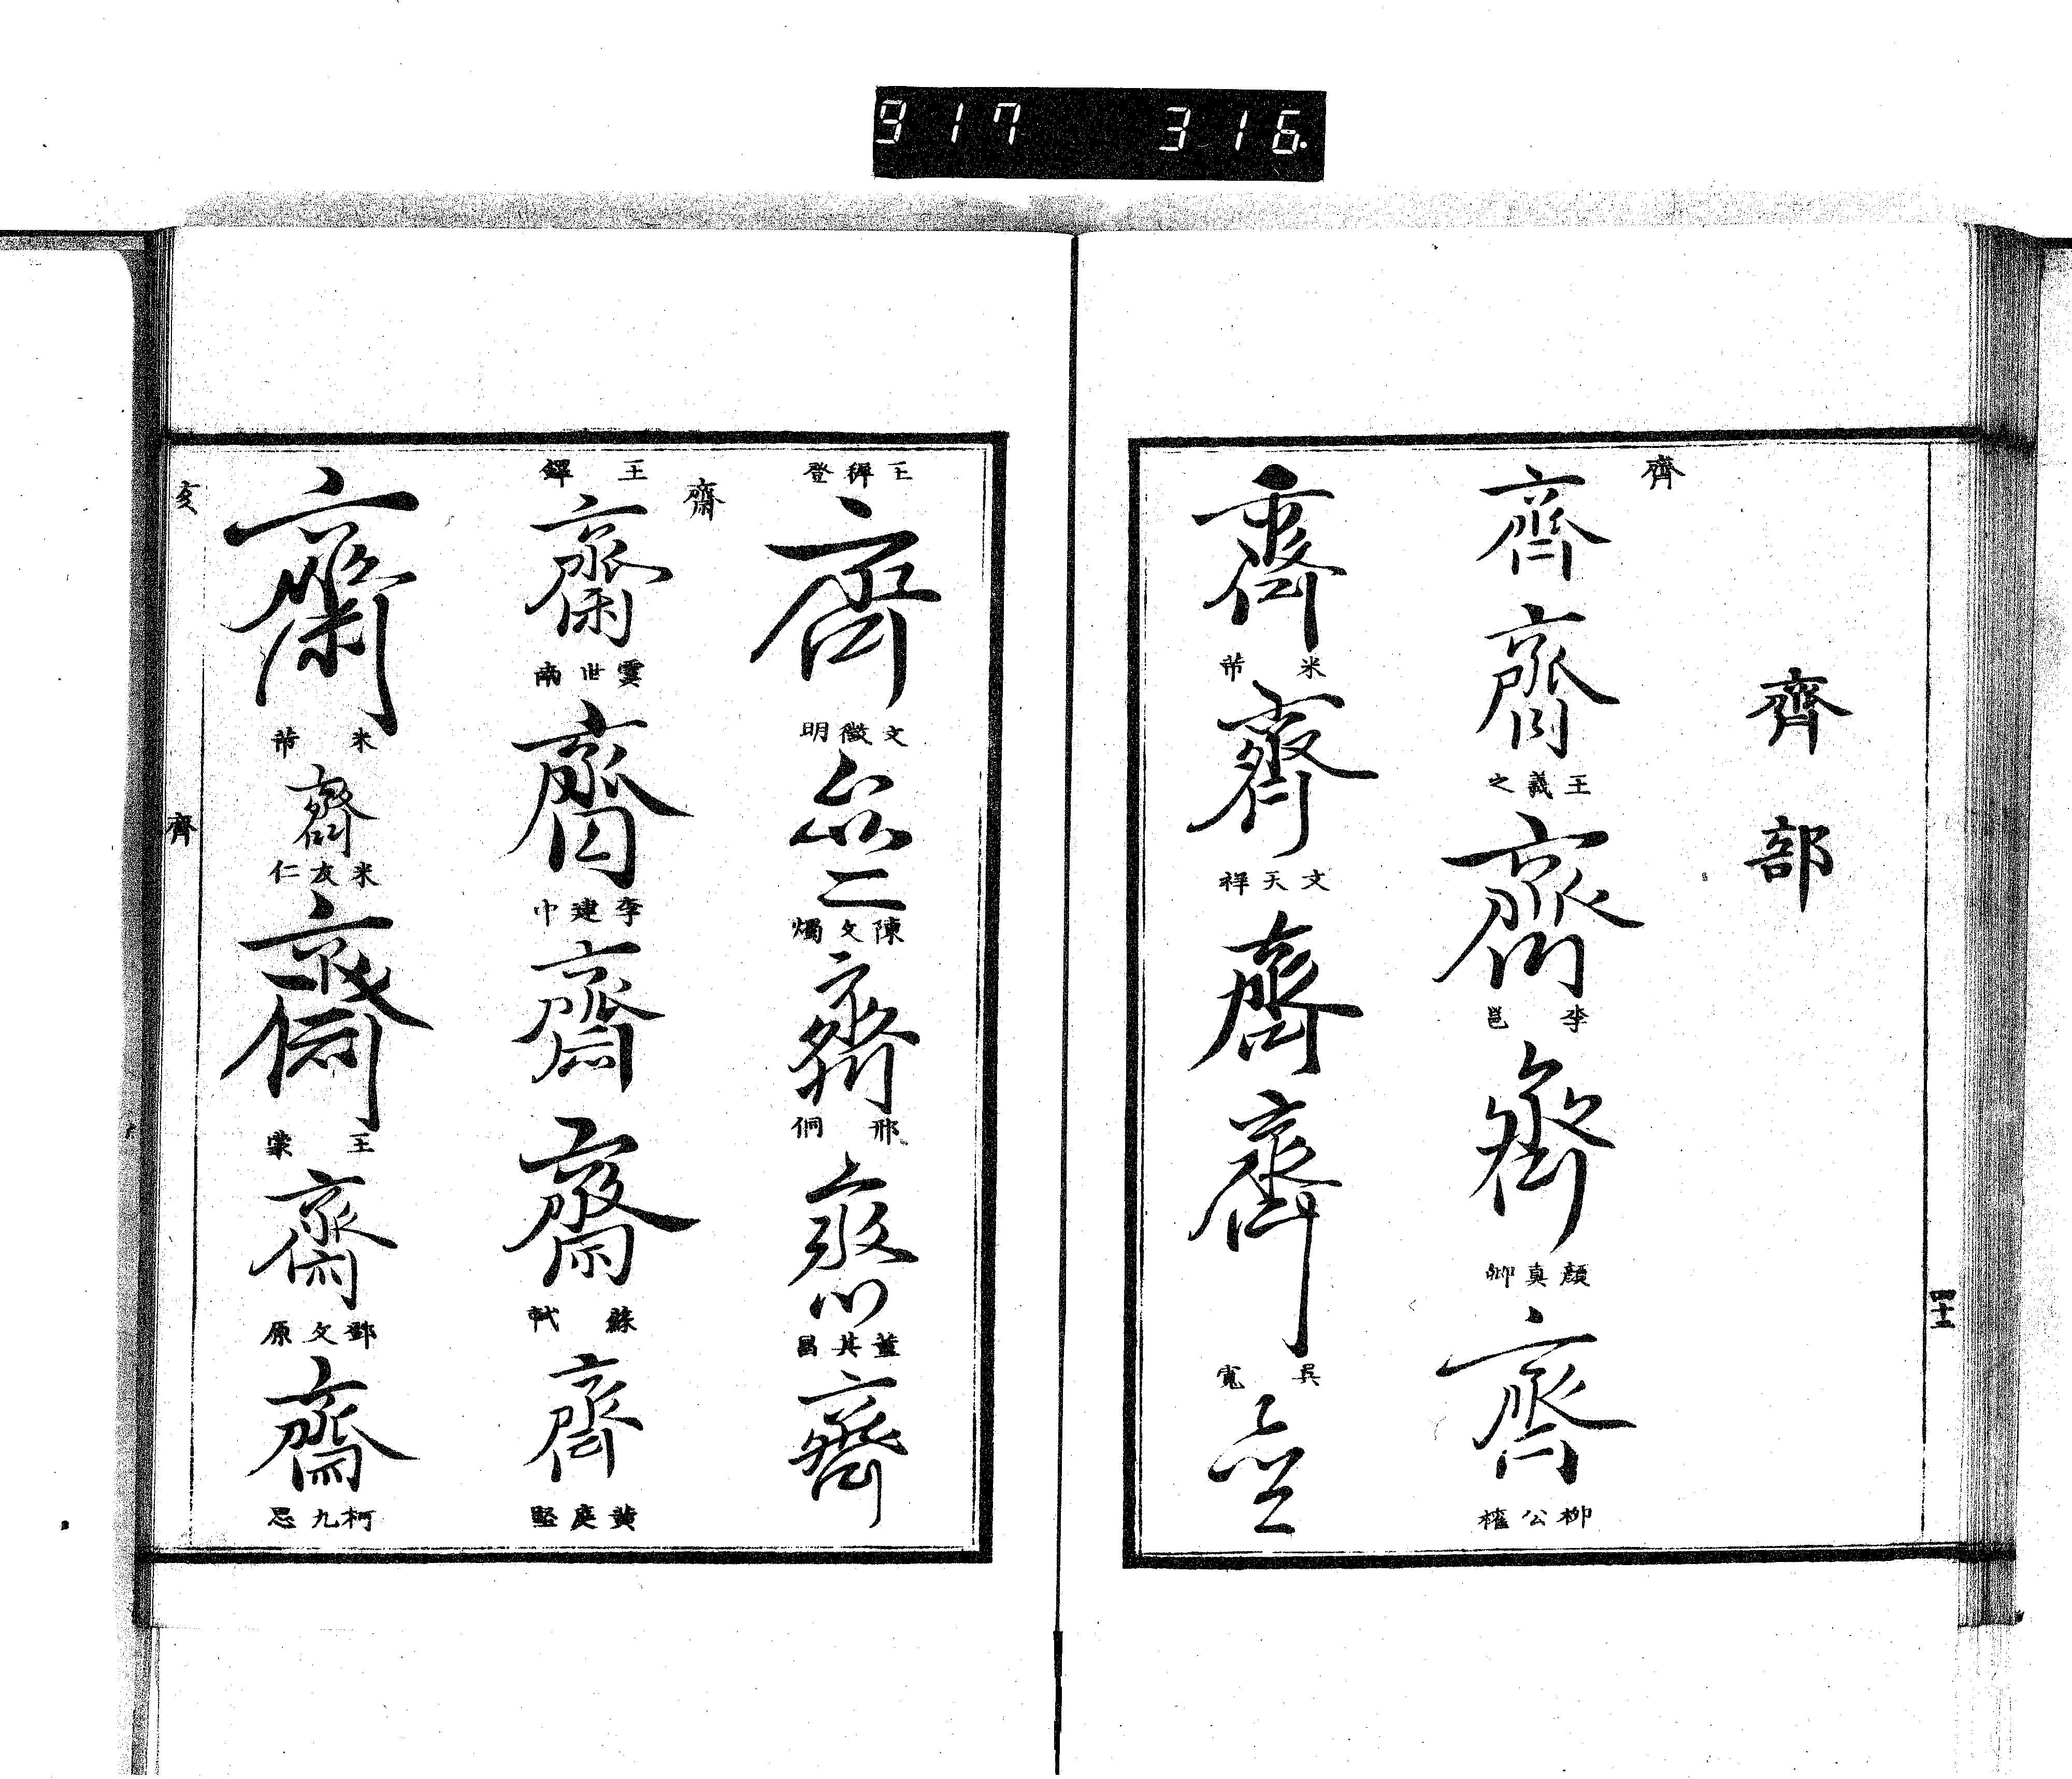 917 316.
齊部
齊
齊
齊
王羲之
齊
李邕
齊
顏真卿
齊
柳公權
齊
米芾
齊
文天祥
齊
齊
吳寬
齊
四十二
王穉登
齊
文徵明
齊
陳文燭
齊
邢侗
齊
董其昌
齊
王鐸
齋
齋
虞世南
齋
李建中
齋
齋
蘇軾
齋
黃庭堅
齋
米芾
齋
米友仁
齋
王蒙
齋
鄧文原
齋
柯九思
亥
齊